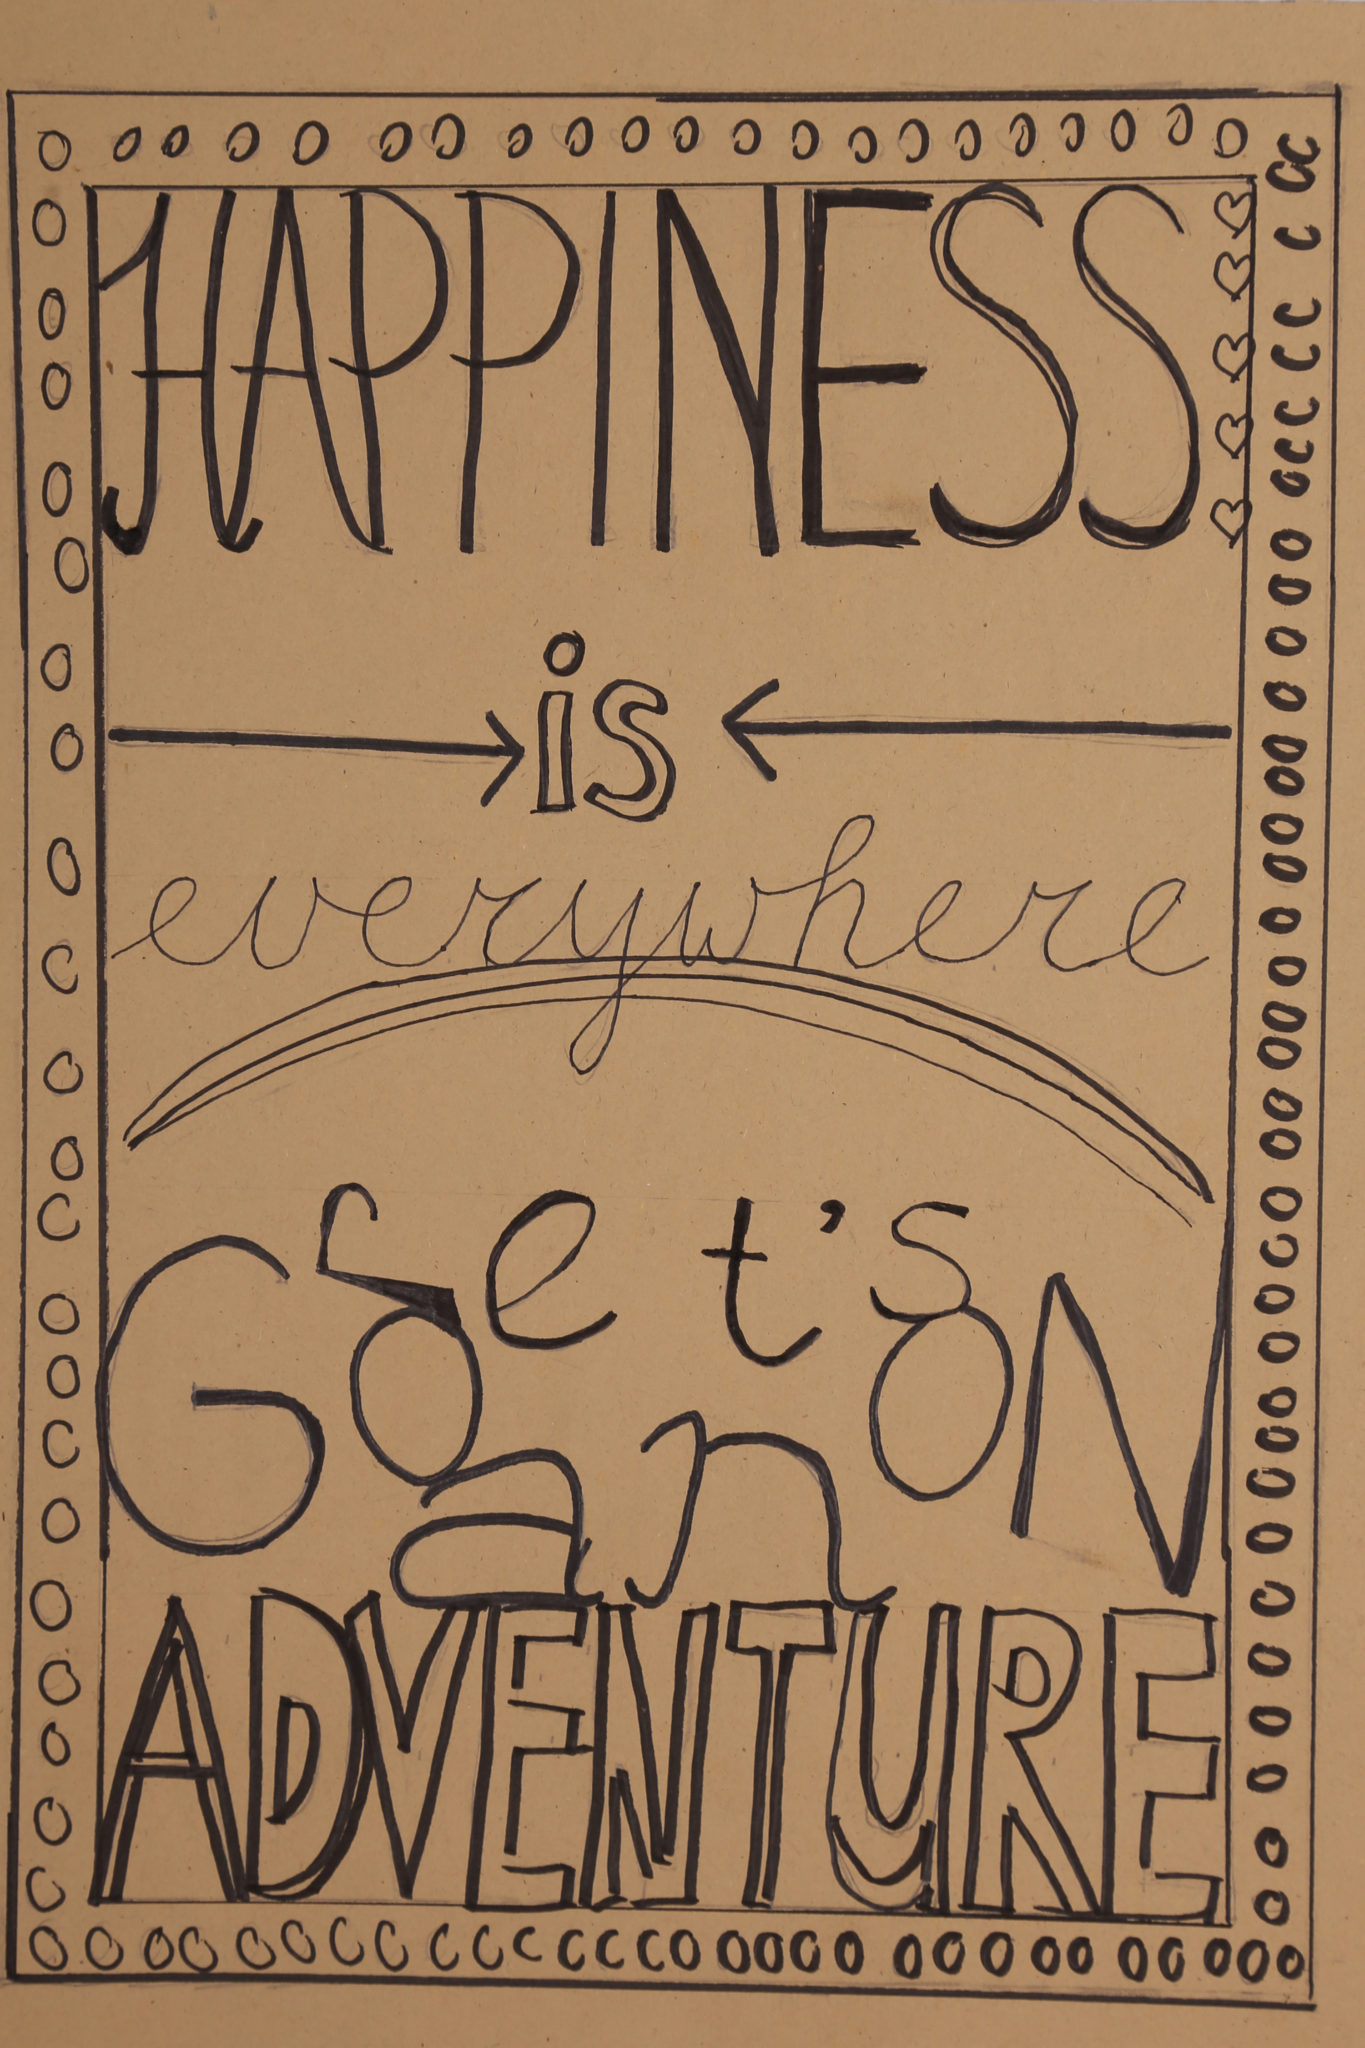 HAPPINESS
is
everywhere
Let's
Go ON
an
ADVENTURE